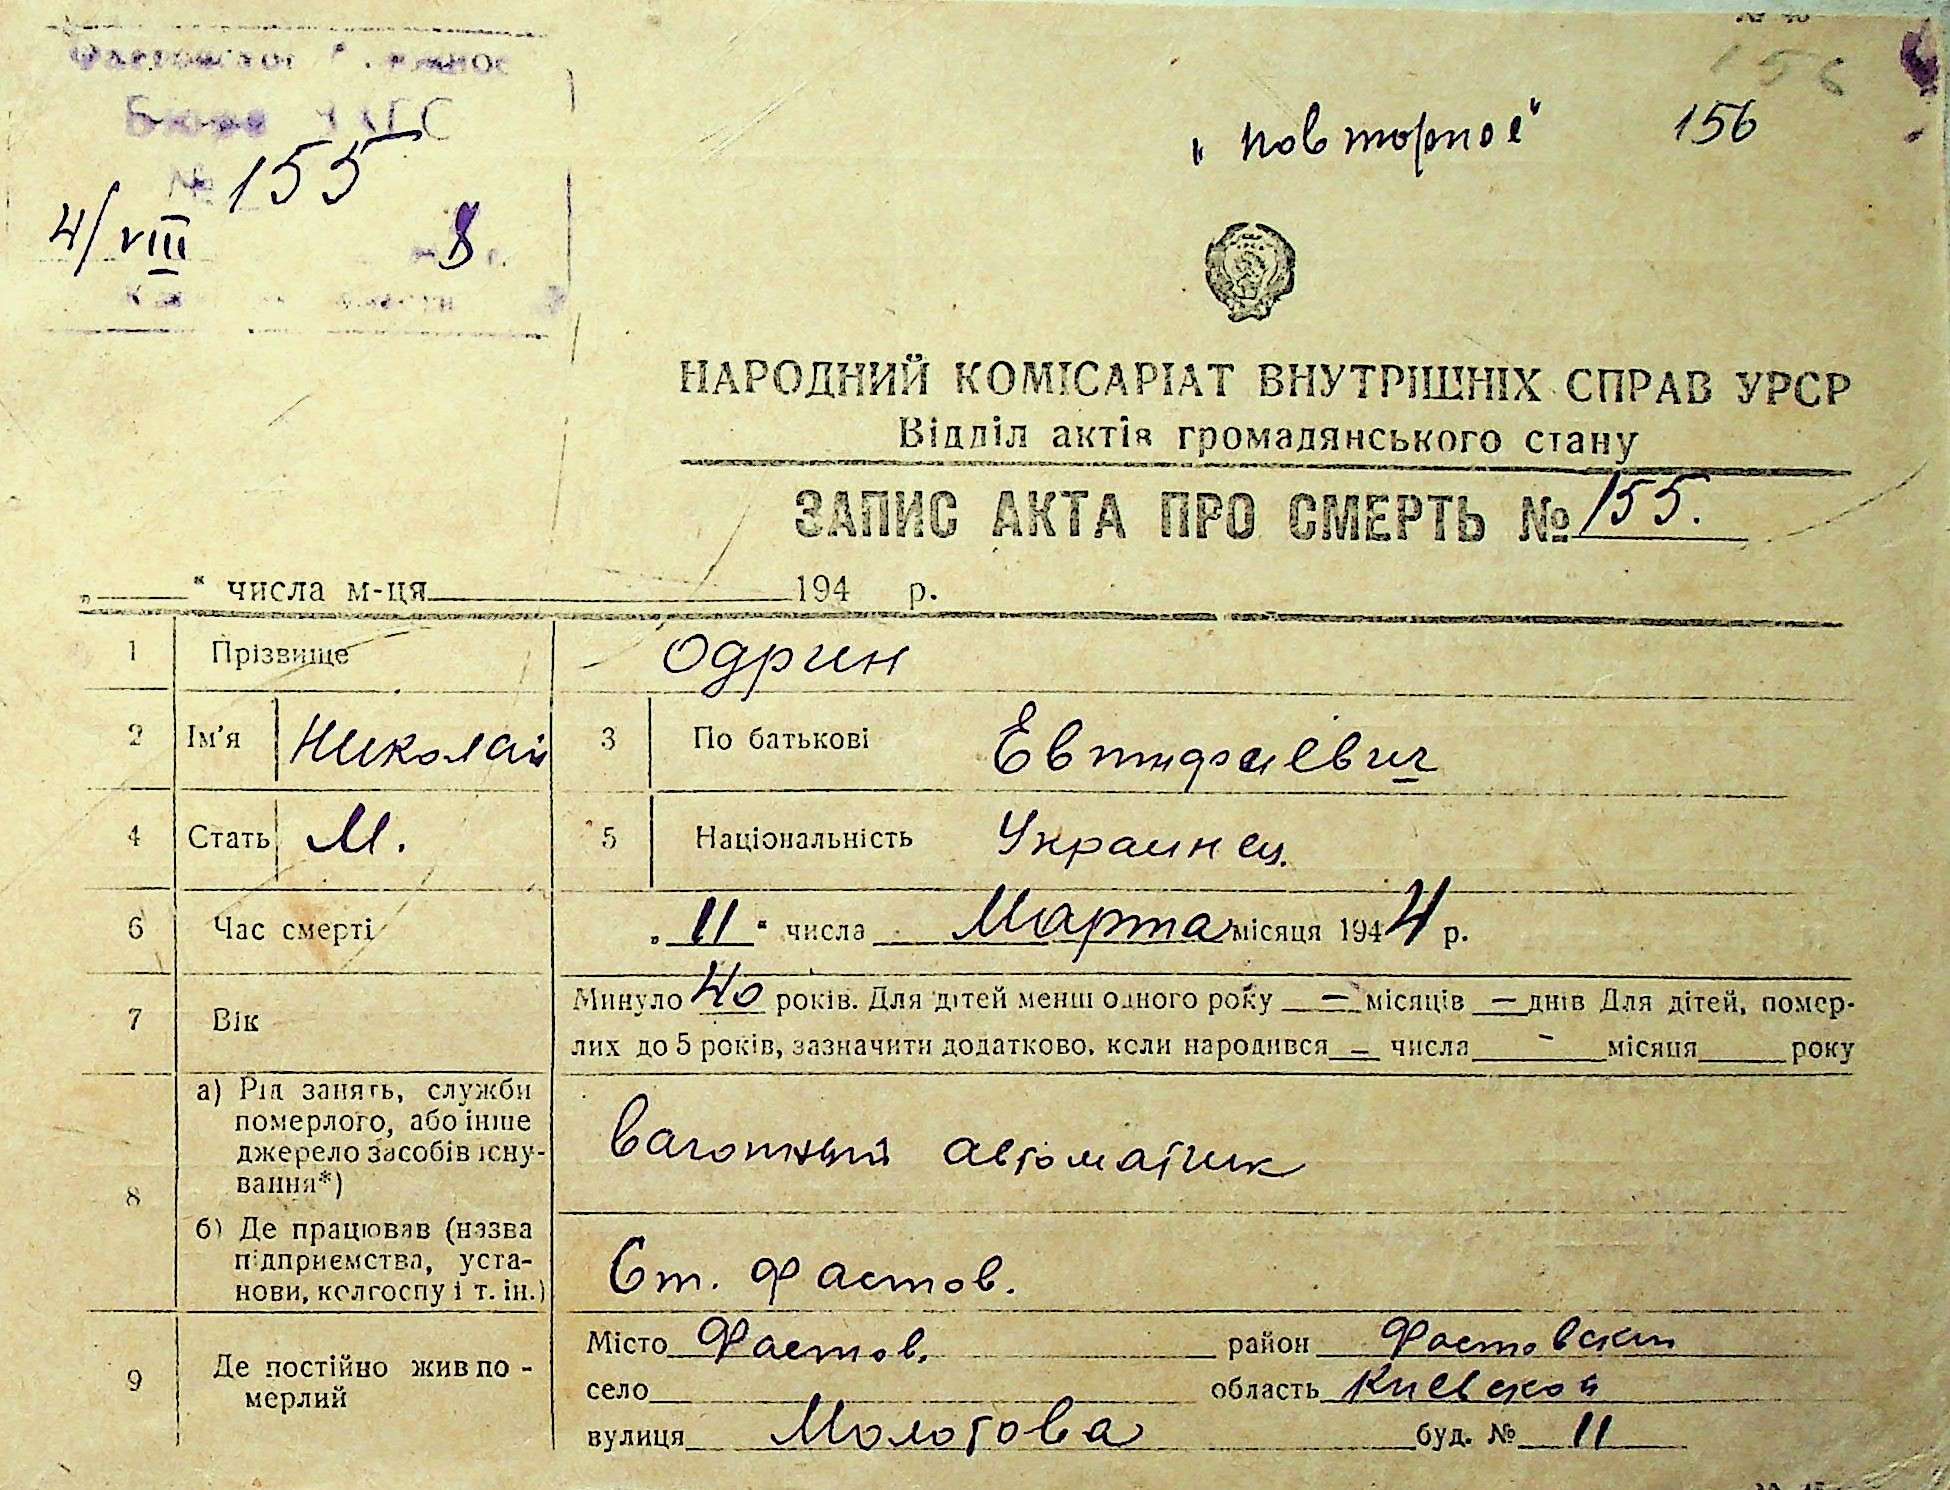 Бюро ЗАГС
№ 155
4/VIII 8 г.
"повторное" 156
156
НАРОДНИЙ КОМІСАРІАТ ВНУТРІШНІХ СПРАВ УРСР
Відділ актів громадянського стану
ЗАПИС АКТА ПРО СМЕРТЬ № 155.
„ “ числа м-ця 194 р.
1 Прізвище Одрин
2 Ім'я Николай 3 По батькові Евтифиевич
4 Стать М. 5 Національність Украинец.
6 Час смерті „11“ числа Марта місяця 1944 р.
7 Вік Минуло 40 років. Для дітей менш одного року — місяців — днів Для дітей, помер-
лих до 5 років, зазначити додатково, коли народився — числа - місяця року
8 а) Рід занять, служби
померлого, або інше
джерело засобів існу-
вання*)
вагонный автоматик
б) Де працював (назва
підприємства, уста-
нови, колгоспу і т. ін.)
Ст. Фастов.
9 Де постійно жив по-
мерлий
Місто Фастов. район Фастовский
село область Киевской
вулиця Молотова буд. № 11